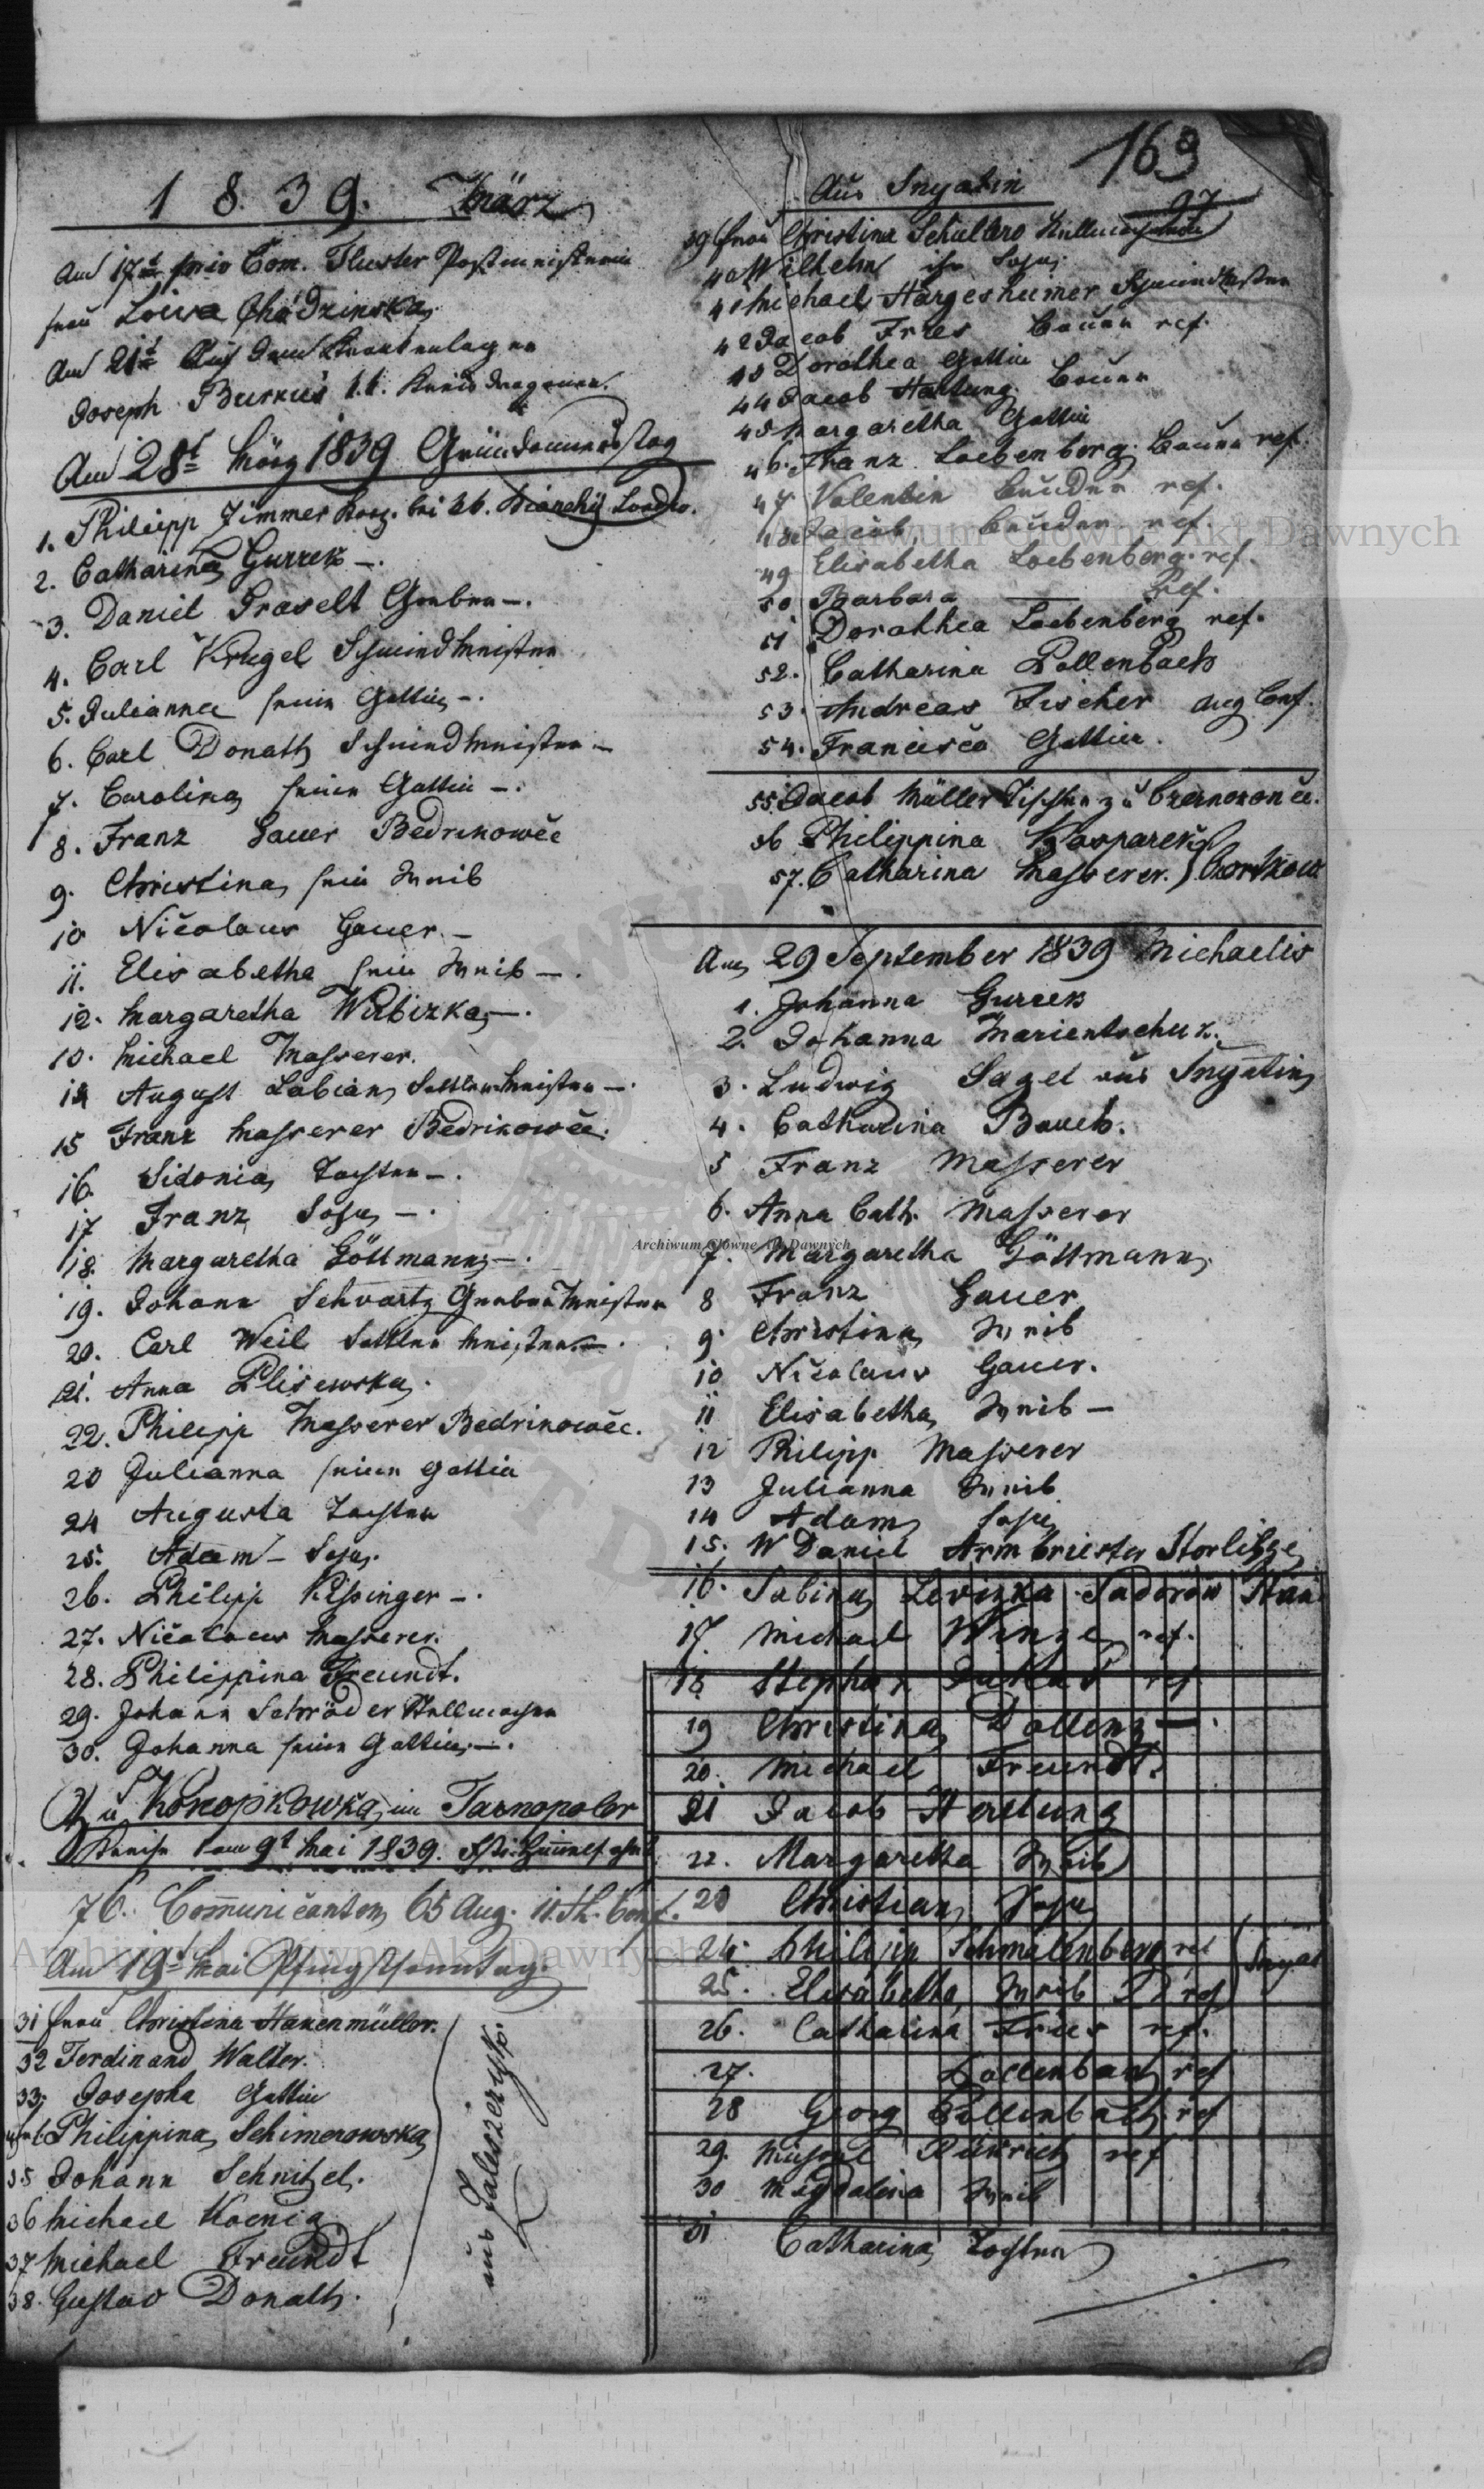 1 8. 39. März
Am 17t priv Com. Fluster Postmeisterin
Frau Loiva Chodzinska
Am 21t Auf dem Krankenlager
Joseph Burkus k.k. Kreis dragoner.
Am 28t März 1839 Gründonnerstag
1. Philipp Zimmer bei
2. Catharina Gurrek —.
3. Daniel Praselt Gerber —.
4. Carl Krugel Schmiedmeister
5. Julianna seine Gattin —.
6. Carl Donath Schmiedmeister —
7. Carolina seine Gattin —.
8. Franz Gauer Bedrikowče
9. Christina sein Weib
10 Ničolaus Gauer —
11. Elisabetha sein Weib —.
12. Margaretha Wubizka —.
13. Michael Masserer.
14 August Labian Sattlermeister —.
15 Franz Masserer Bedrikowče.
16. Sidonia Tochter —.
17 Franz Sohn —.
18. Margaretha Göttmann —.
19. Johann Schvartz Gerber Meister
20. Carl Weil Sattler Meister —.
21. Anna Plisewska.
22. Philipp Masserer Bedrikowče.
23 Julianna seine Gattin
24 Augusta Tochter
25. Adam — Sohn.
26. Philipp Kissinger —.
27. Ničolaus Masserer.
28. Philippina Freundt.
29. Johann Schröder Stellmacher
30. Johanna seine Gattin —.
Zu Konopkowka im Tarnopoler
Kreise am 9t Mai 1839. Himmelfahrt
76. Com̄uničanten 65 Aug. 11. H. Conf.
Am 19t Mai Pfingstsonntag.
31 Frau Christina Hanenmüller.
32 Ferdinand Walter.
33. Josepha Gattin
Philippina Schimerowska
35 Johann Schnitzel.
36 Michael Koenig
37 Michael Freundt
38. Gustav Donath.
aus Zaleszczyk.
169
Aus Snyatin
97
39 Frau Christina Schullero Stellmacherin
40 Wilhelm ihr Sohn.
41 Michael Hargesheimer Schmiedmeister
42 Jacob Fries Bauer ref.
43 Dorothea Gattin
44 Jacob Hartung. Bauer
45 Margaretha Gattin
46. Franz Loebenberg. Bauer ref.
47 Valentin Bruder ref.
48 Jacob Bruder ref.
49 Elisabetha Loebenberg. ref.
50 Barbara — Ref.
51 Dorothea Loebenberg ref.
52. Catharina Pollenbach
53. Andreas Fischer aug Conf.
54. Francisča Gattin.
55. Jacob Müller Tischler zu Czernokonče.
56 Philippina Kasparek
57. Catharina Masserer. } Czortkow
Am 29 September 1839 Michaelis
1. Johanna Gurrek
2. Johanna Marientschuk.
3. Ludwig Sagel aus Snyatin
4. Catharina Bauch.
5 Franz Masserer
6. Anna Cath. Masserer
7. Margaretha Göttmann
8 Franz Gauer
9. Christina Weib
10 Ničolaus Gauer.
11 Elisabetha Weib —
12 Philipp Masserer
13 Julianna Weib
14 Adam Sohn
15. W Daniel Armbriester
16. Sabina Levizka Sadorow
17 Michael Winze ref.
18 Stephan ref
19 Christina Dollenz —.
20. Michael Freundt.
21 Jacob Hertung
22. Margaretha Weib
23 Christian Sohn
24. Philipp Schmalenberg ref
25. Elisabetha Weib ref
26. Catharina Fries ref.
27. Pollenbach ref
28 Georg Pollenbach ref
29. Michael Dietrich ref
30 Magdalena Weib
31 Catharina Tochter
Archiwum Główne Akt Dawnych
Archiwum Główne Akt Dawnych
Archiwum Główne Akt Dawnych